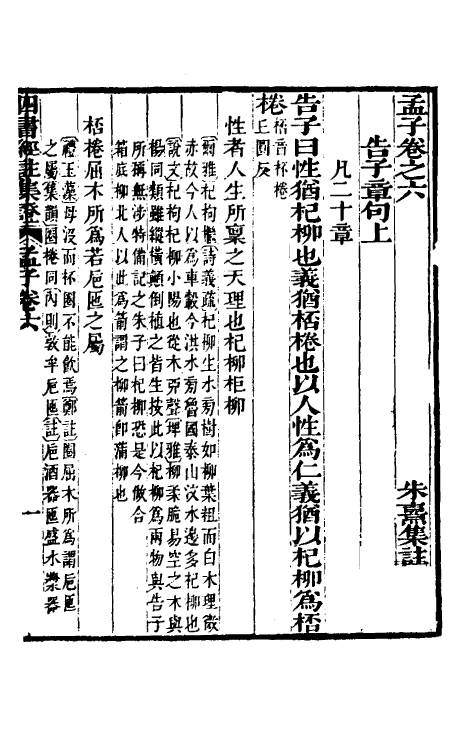 孟子卷之六
朱熹集註
告子章句上
凡二十章
告子曰性猶杞柳也義猶桮棬也以人性爲仁義猶以杞柳爲桮
棬
桮音杯棬
丘圓反
性者人生所稟之天理也杞柳柜柳
爾雅杞枸檵詩義疏杞柳生水旁樹如柳葉粗而白木理微
赤故今人以爲車轂今淇水旁魯國泰山汶水邊多杞柳也
說文杞枸杞柳小楊也從木丣聲埤雅柳柔脆易空之木與
楊同類雖縱橫顛倒植之皆生按此以杞柳爲兩物與告子
所稱無涉特備記之朱子曰杞柳恐是今做合
箱底柳北人以此爲箭謂之柳箭卽蒲柳也
桮棬屈木所爲若巵匜之屬
禮玉藻母沒而杯圈不能飮焉鄭註圈屈木所爲謂巵匜
之屬集韻圈棬同內則敦牟巵匜註巵酒器匜盛水漿器
四書經註集證 孟子卷六
一